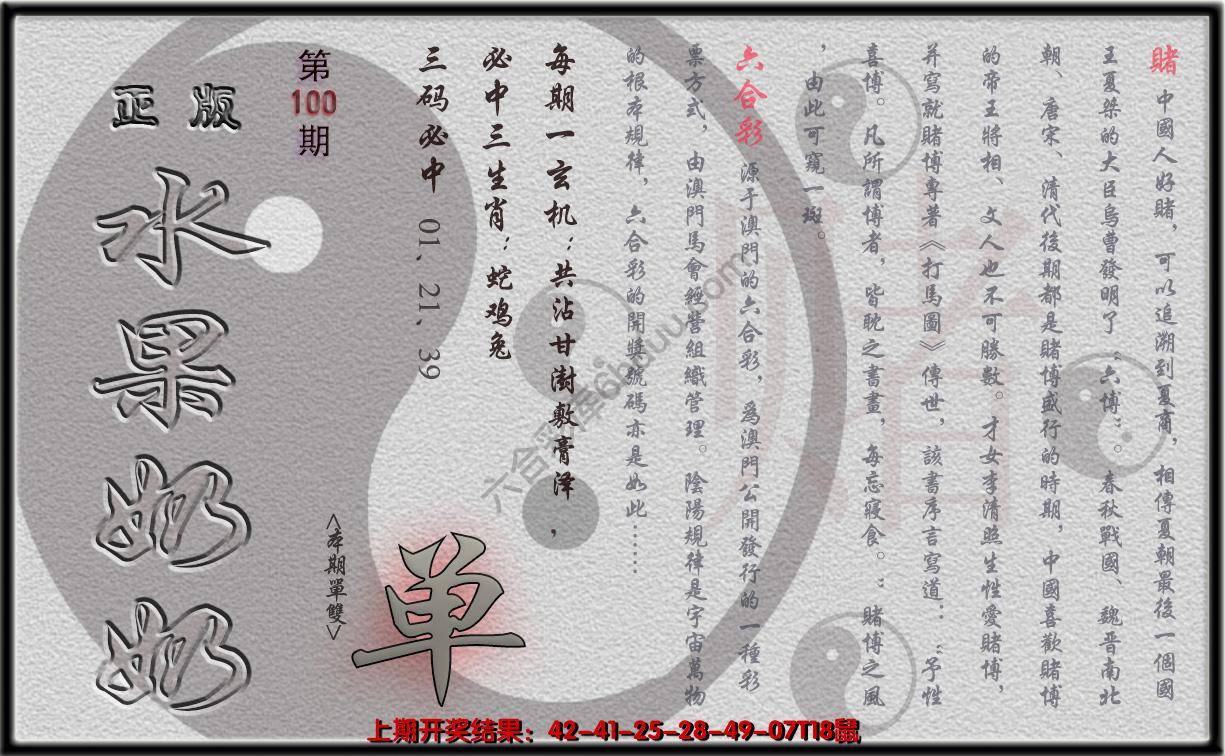 賭 中國人好賭，可以追溯到夏商，相傳夏朝最後一個國
王夏桀的大臣烏曹發明了“六博”。春秋戰國、魏晋南北
朝、唐宋、清代後期都是賭博盛行的時期，中國喜歡賭博
的帝王將相、文人也不可勝數。才女李清照生性愛賭博，
并寫就賭博專著《打馬圖》傳世，該書序言寫道：“予性
喜博。凡所謂博者，皆耽之書畫，每忘寢食。”賭博之風
，由此可窺一斑。
六合彩 源于澳門的六合彩，爲澳門公開發行的一種彩
票方式，由澳門馬會經營組織管理。陰陽規律是宇宙萬物
的根本規律，六合彩的開獎號碼亦是如此……
每期一玄机：共沾甘澍敷膏泽，
必中三生肖：蛇鸡兔
三码必中 01．21．39
第100期
正版
水果奶奶
<本期單雙>
单
赌
六合彩泽6huuu.com
上期开奖结果：42-41-25-28-49-07T18鼠